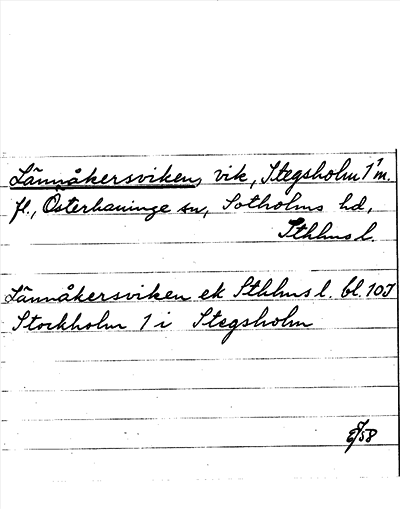 Lännåkersviken, vik, Stegsholm 1¹ m.
fl., Österhaninge sn, Sotholms hd,
Sthlms l.
Lännåkersviken ek Sthlms l. bl. 10J
Stockholm 1 i Stegsholm